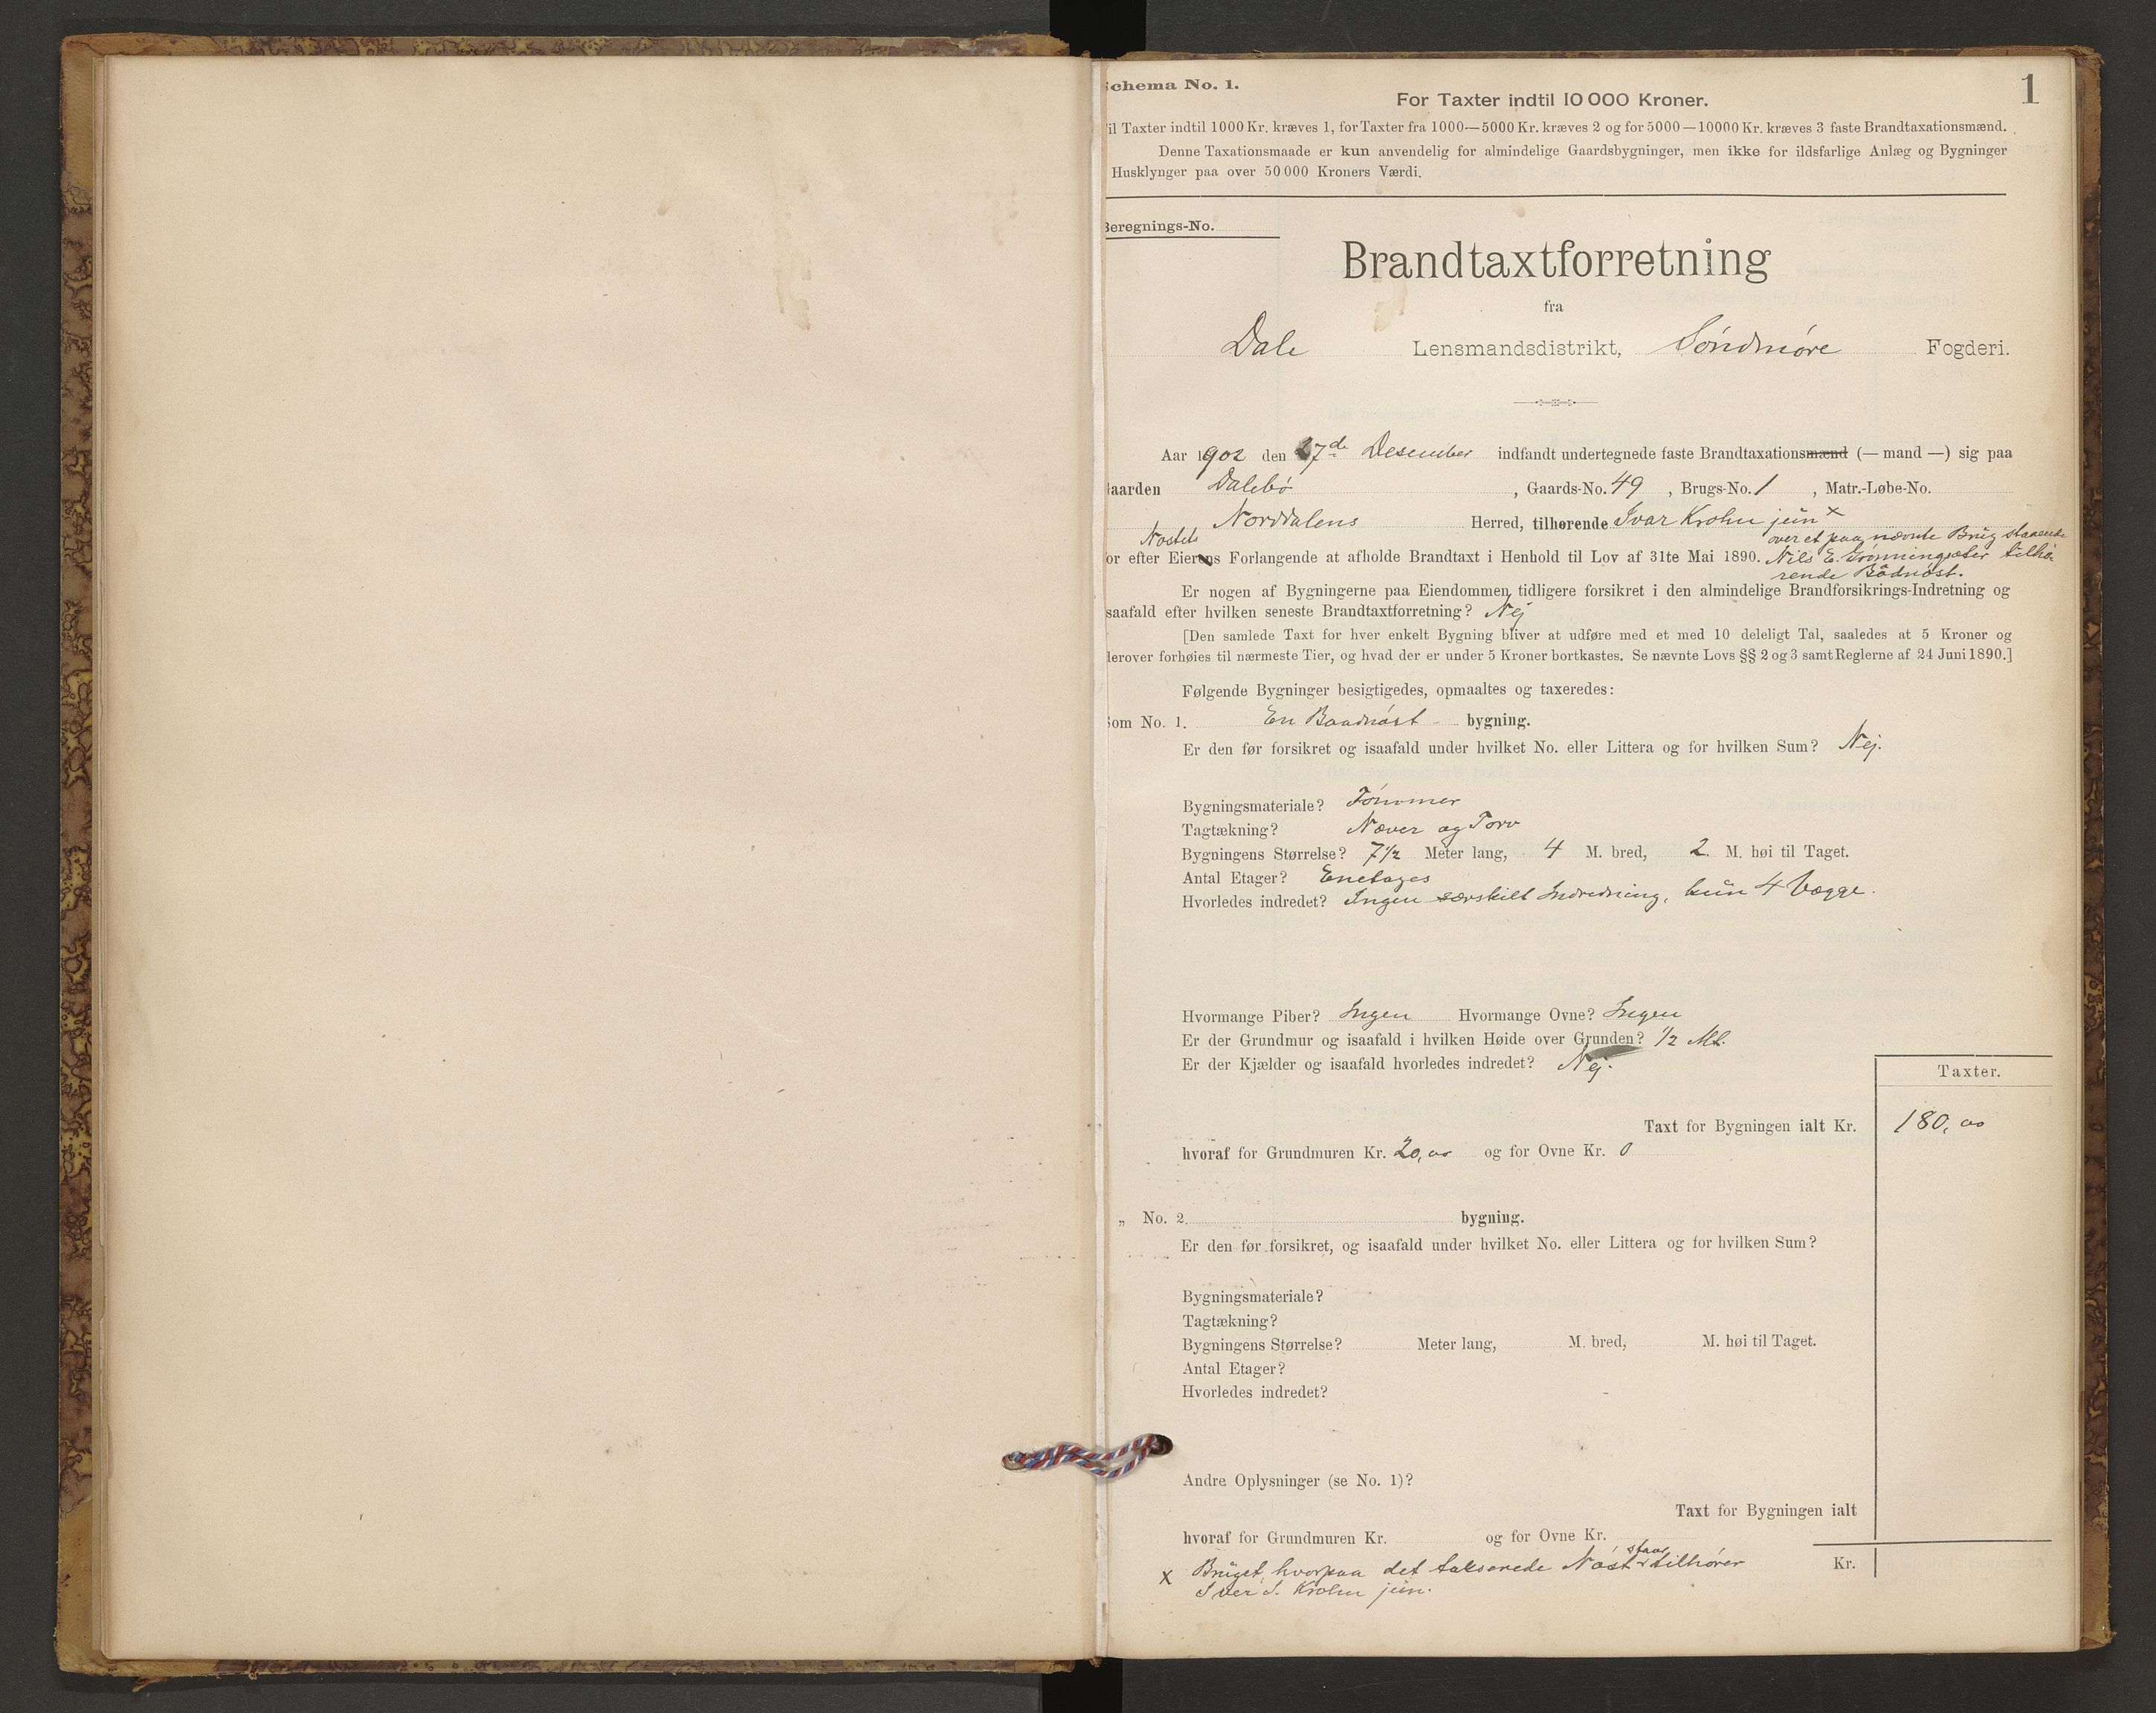 1
chema No. 1.
For Taxter indtil 10 000 Kroner.
il Taxter indtil 1000 Kr. kræves 1, for Taxter fra 1000—5000 Kr. kræves 2 og for 5000—10000 Kr. kræves 3 faste Brandtaxationsmænd.
Denne Taxationsmaade er kun anvendelig for almindelige Gaardsbygninger, men ikke for ildsfarlige Anlæg og Bygninger
Husklynger paa over 50 000 Kroners Værdi.
Beregnings-No.
Brandtaxtforretning
fra
Dale Lensmandsdistrikt, Söndmöre Fogderi.
Aar 1902 den 27de Desember indfandt undertegnede faste Brandtaxationsmænd (— mand —) sig paa
aarden Dalebö, Gaards-No. 49, Brugs-No. 1, Matr.-Løbe-No.
Norddalens Herred, tilhørende Ivar Krohn jun x
over et paa nævnte Brug staaende
Nöstets
or efter Eierens Forlangende at afholde Brandtaxt i Henhold til Lov af 31te Mai 1890. Nils E. Grönningsæter tilhö-
rende Bådnöst.
Er nogen af Bygningerne paa Eiendommen tidligere forsikret i den almindelige Brandforsikrings-Indretning og
saafald efter hvilken seneste Brandtaxtforretning? Nej
[Den samlede Taxt for hver enkelt Bygning bliver at udføre med et med 10 deleligt Tal, saaledes at 5 Kroner og
derover forhøies til nærmeste Tier, og hvad der er under 5 Kroner bortkastes. Se nævnte Lovs §§ 2 og 3 samt Reglerne af 24 Juni 1890.]
Følgende Bygninger besigtigedes, opmaaltes og taxeredes:
Som No. 1. En Baadnöst bygning.
Er den før forsikret og isaafald under hvilket No. eller Littera og for hvilken Sum? Nej.
Bygningsmateriale? Tömmer
Tagtækning? Næver og Torv
Bygningens Størrelse? 7 1/2 Meter lang, 4 M. bred, 2 M. høi til Taget.
Antal Etager? Enetages
Hvorledes indredet? Ingen særskilt Indredning, kun 4 Vægge.
Hvormange Piber? Ingen Hvormange Ovne? Ingen
Er der Grundmur og isaafald i hvilken Høide over Grunden? 1/2 Mt.
Er der Kjælder og isaafald hvorledes indredet? Nej.
Taxter.
Taxt for Bygningen ialt Kr. 180,00
hvoraf for Grundmuren Kr. 20,00 og for Ovne Kr. 0
„ No. 2. bygning.
Er den før forsikret, og isaafald under hvilket No. eller Littera og for hvilken Sum?
Bygningsmateriale?
Tagtækning?
Bygningens Størrelse? Meter lang, M. bred, M. høi til Taget.
Antal Etager?
Hvorledes indredet?
Andre Oplysninger (se No. 1)?
Taxt for Bygningen ialt
hvoraf for Grundmuren Kr. og for Ovne Kr.
Kr.
staar
x Bruget, hvorpaa det takserede Nöst tilhører
Iver I. Krohn jun.